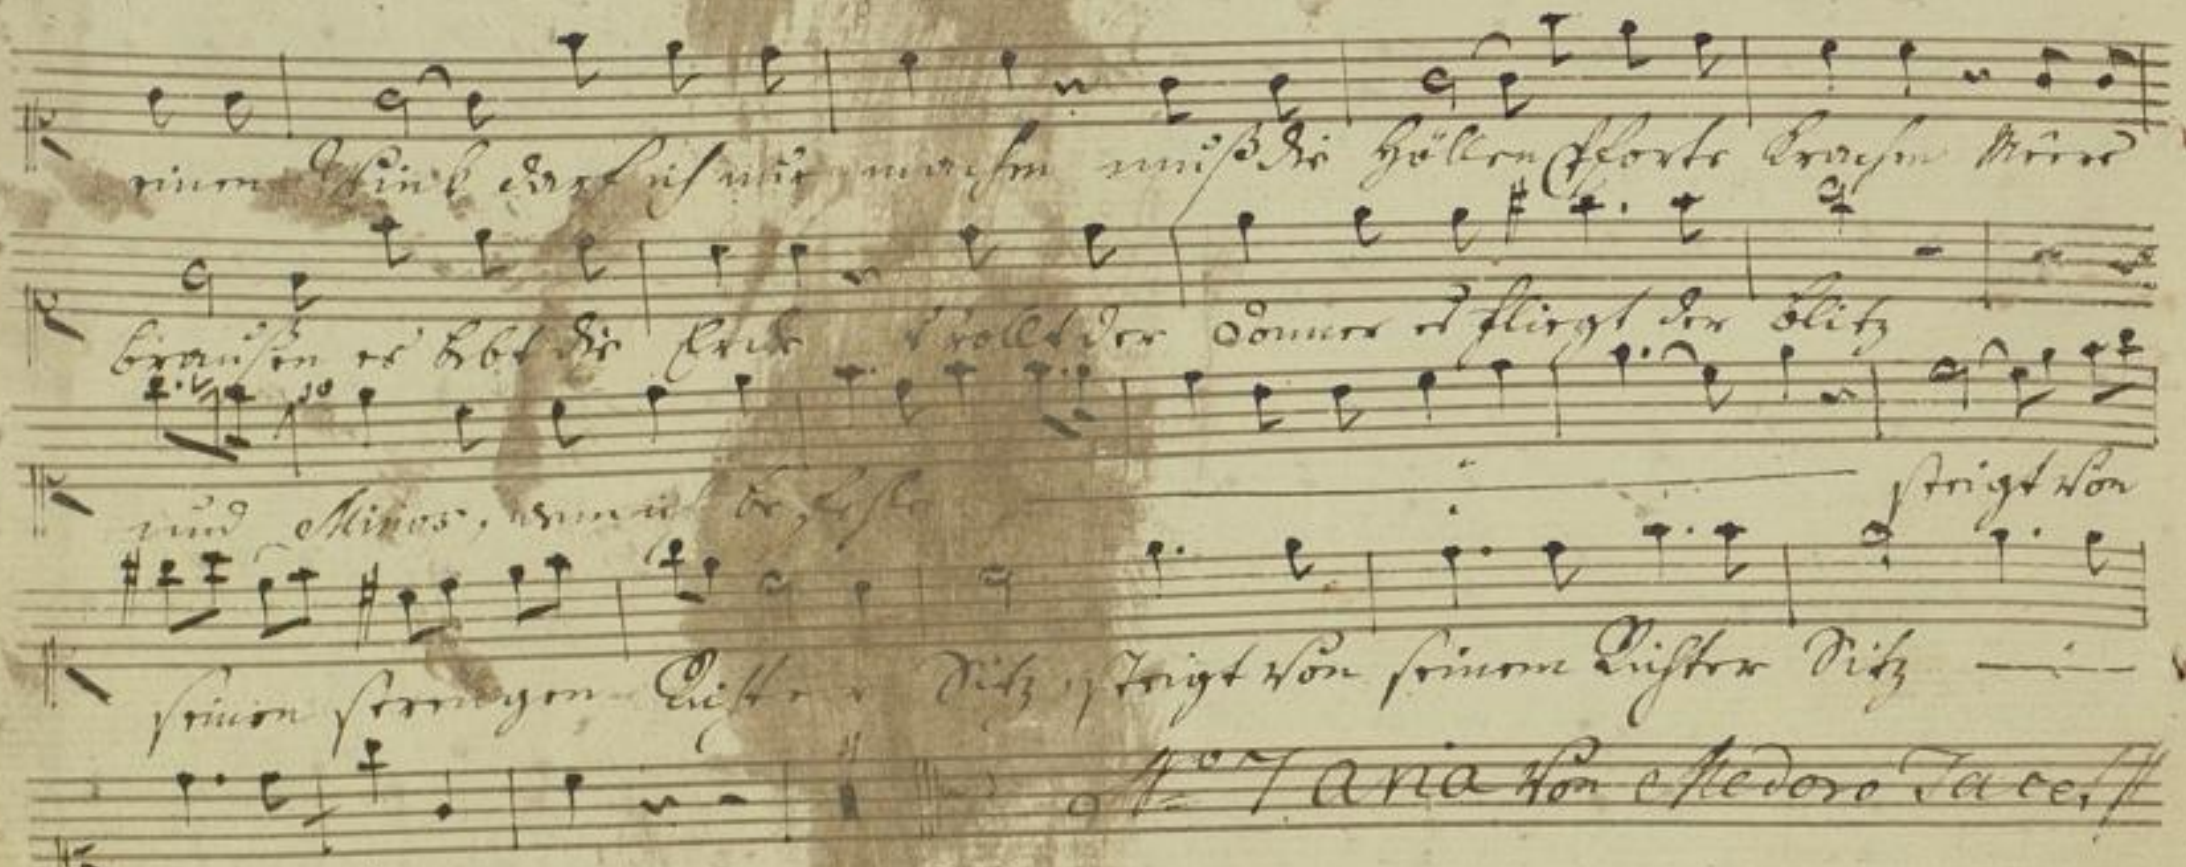 einen Wink darf ich nur machen muß die Höllen Pforte krachen Meere
brausen es bebt die Erde rollt der Donner es fliegt der Blitz
und Minos, wenn ich befehle steigt von
seinen strengen Richter Sitz, steigt von seinem Richter Sitz
No 7 Aria von Medoro Tacet